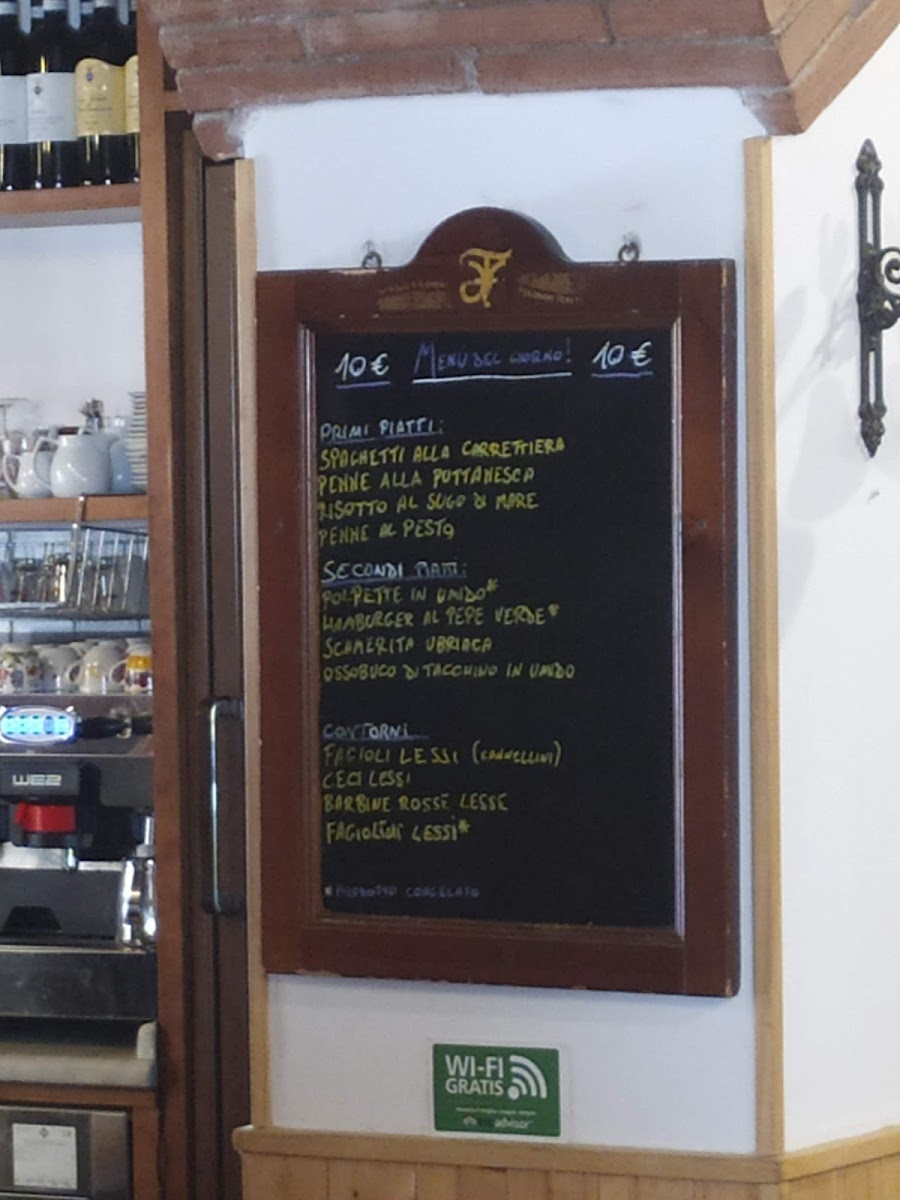 10 € MENÙ DEL GIORNO! 10 €
PRIMI PIATTI:
SPAGHETTI ALLA CARRETTIERA
PENNE ALLA PUTTANESCA
RISOTTO AL SUGO DI MARE
PENNE AL PESTO
SECONDI PIATTI:
POLPETTE IN UMIDO*
HAMBURGER AL PEPE VERDE*
SCAMERITA UBRIACA
OSSOBUCO DI TACCHINO IN UMIDO
CONTORNI
FAGIOLI LESSI (CANNELLINI)
CECI LESSI
BARBINE ROSSE LESSE
FAGIOLINI LESSI*
*PRODOTTO CONGELATO
WI-FI
GRATIS
tripadvisor
WE2